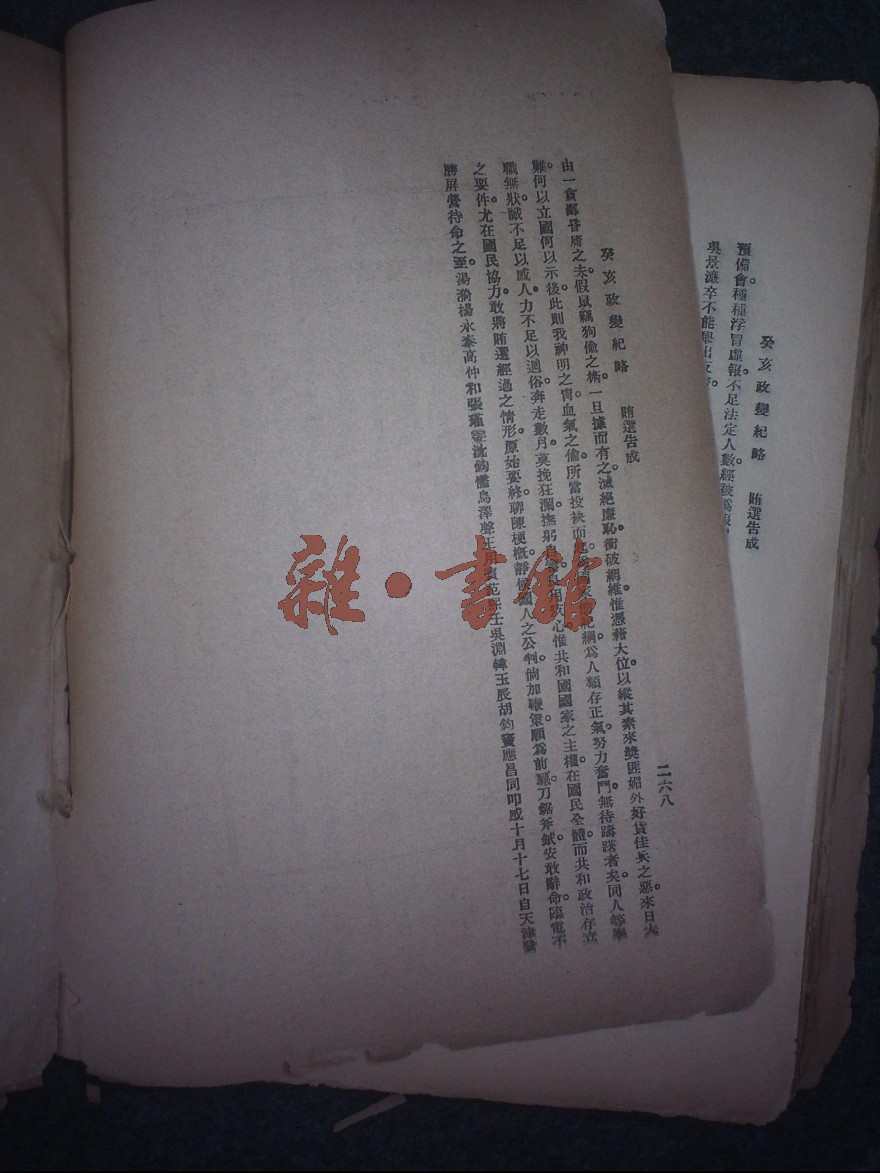 癸亥政變紀略 賄選告成
二六八
由一貪鄙昏庸之夫。假鼠竊狗偷之技。一旦據而有之。滅絕廉恥。衝破綱維。惟憑藉大位。以縱其素來獎匪媚外好貨佳兵之惡。來日大
難。何以立國。何以示後。此則我神明之胄。血氣之倫。所當投袂而起。紀綱。為人類存正氣。努力奮鬥。無待躊躇者矣。同人等舉
職無狀。誠不足以感人。力不足以迴俗。奔走數月。莫挽狂瀾。撫躬自心。惟共和國國家之主權。在國民全體。而共和政治存立
之要件。尤在國民協力。敢將賄選經過之情形。原始要終。聊陳梗概。靜候國人之公判。倘加鞭策。願為前驅。刀鋸斧鉞。安敢辭命。臨電不
勝屏營待命之至。湯漪楊永泰高仲和張瑾雯沈鈞儒烏澤聲王范熙壬吳淵韓玉辰胡鈞竇應昌同叩咸十月十七日自天津發
癸亥政變紀略 賄選告成
預備會。種種浮冒虛報。不足法定人數。經被
吳景濂卒不能舉出
雜·書館